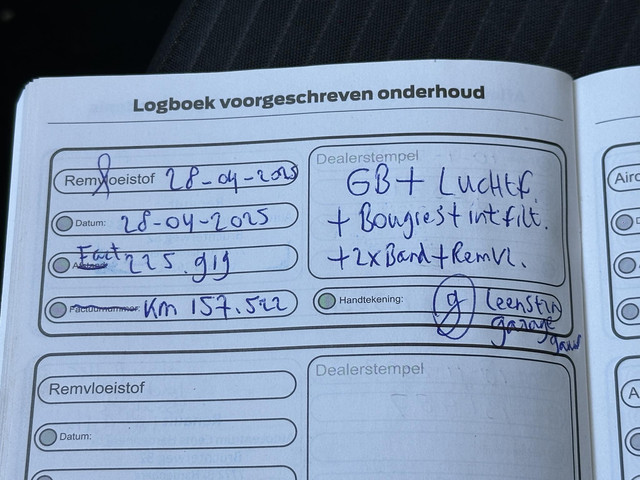 Logboek voorgeschreven onderhoud
Remvloeistof 28-04-2025
Datum: 28-04-2025
Fact 225.919
Factuurnummer: KM 157.522
Dealerstempel
GB + Luchtf.
+ Bougies + intfilt.
+ 2x Band + Remvl.
Handtekening:
garage
Remvloeistof
Datum:
Dealerstempel